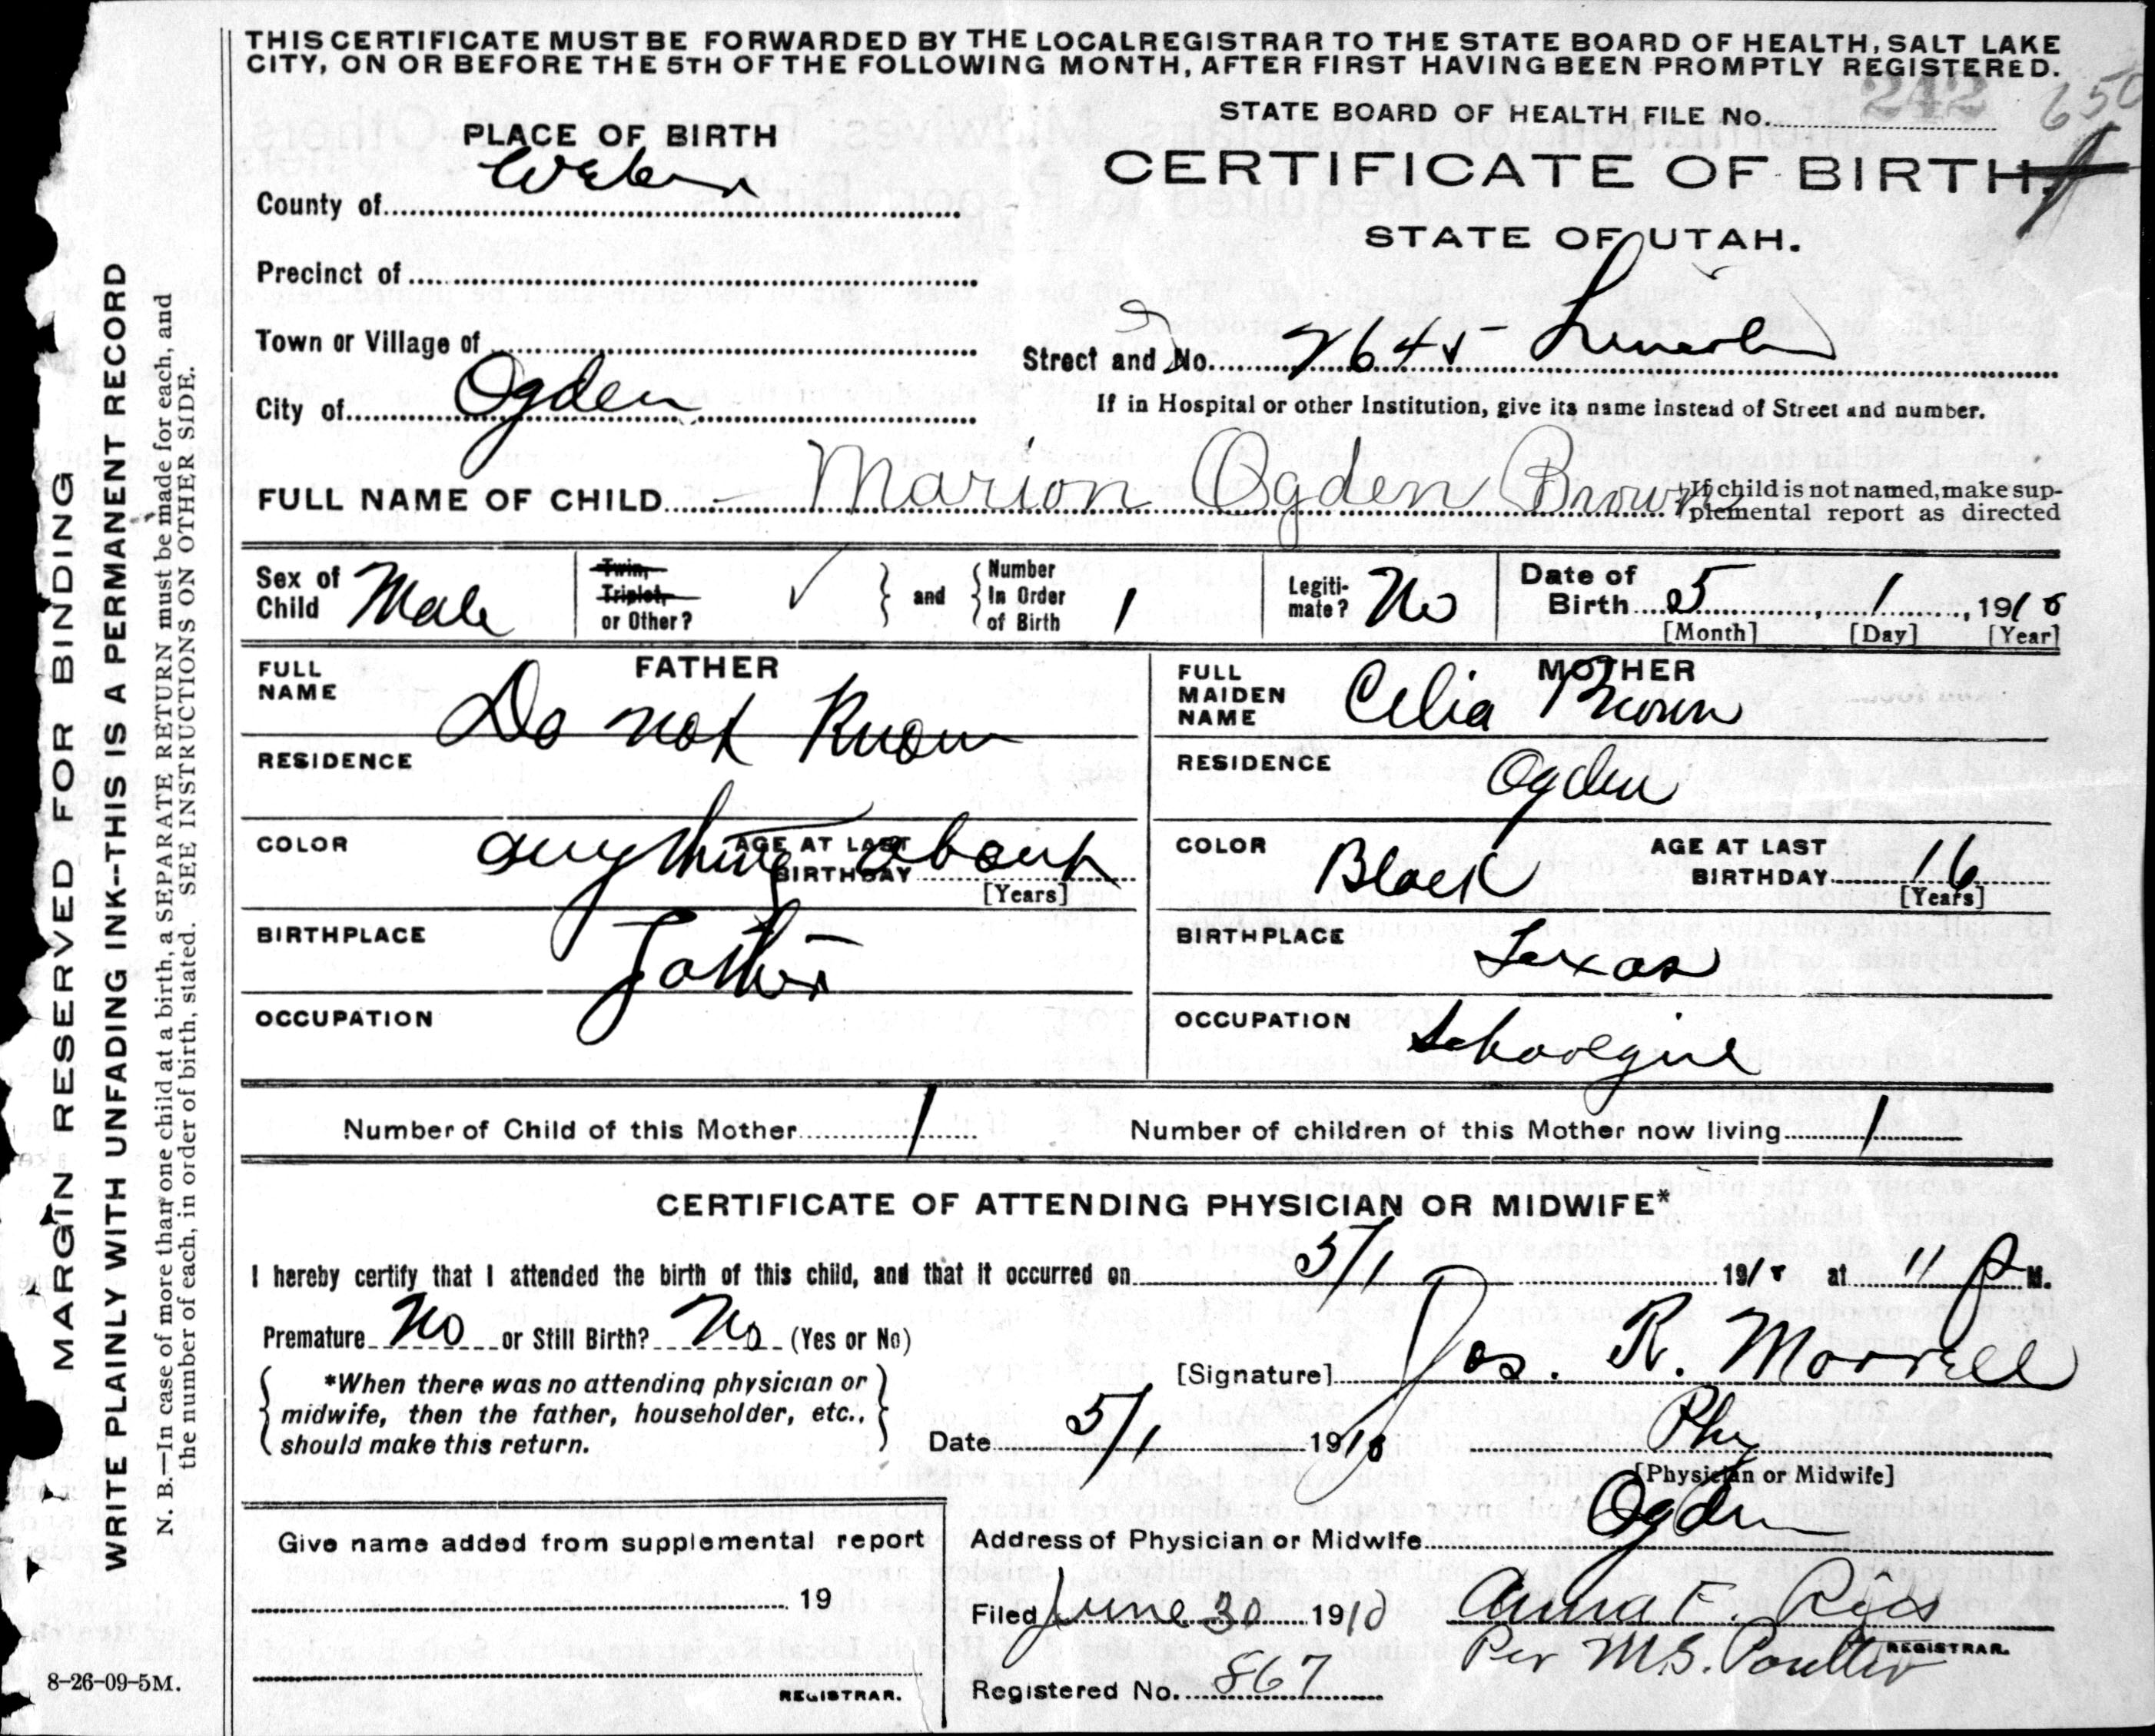 THIS CERTIFICATE MUST BE FORWARDED BY THE LOCAL REGISTRAR TO THE STATE BOARD OF HEALTH, SALT LAKE
CITY, ON OR BEFORE THE 5TH OF THE FOLLOWING MONTH, AFTER FIRST HAVING BEEN PROMPTLY REGISTERED.
STATE BOARD OF HEALTH FILE No. 242 650
PLACE OF BIRTH
CERTIFICATE OF BIRTH.
County of Weber
STATE OF UTAH.
Precinct of
Town or Village of
Street and No. 2645 Lincoln
City of Ogden
If in Hospital or other Institution, give its name instead of Street and number.
FULL NAME OF CHILD Marion Ogden Brown
If child is not named, make sup-
plemental report as directed
Sex of Child Male
Twin, Triplet, or Other? ✓
and
Number In Order of Birth 1
Legiti-mate? No
Date of Birth 5, 1, 1910
[Month] [Day] [Year]
FATHER
FULL NAME Do not Know
RESIDENCE
COLOR anything about
AGE AT LAST BIRTHDAY
[Years]
BIRTHPLACE Father
OCCUPATION
MOTHER
FULL MAIDEN NAME Celia Brown
RESIDENCE Ogden
COLOR Black
AGE AT LAST BIRTHDAY 16
[Years]
BIRTHPLACE Texas
OCCUPATION Schoolgirl
Number of Child of this Mother 1
Number of children of this Mother now living 1
CERTIFICATE OF ATTENDING PHYSICIAN OR MIDWIFE*
I hereby certify that I attended the birth of this child, and that it occurred on 5/1 191 at 11 P M.
Premature No or Still Birth? No (Yes or No)
[Signature] Jos. R. Morrell
*When there was no attending physician or
midwife, then the father, householder, etc.,
should make this return.
Date 5/1 1910
Phy
[Physician or Midwife]
Address of Physician or Midwife Ogden
Give name added from supplemental report
19
REGISTRAR.
Filed June 30 1910
Anna F.
REGISTRAR.
Per M.S. Poulter
Registered No. 867
8-26-09-5M.
MARGIN RESERVED FOR BINDING
WRITE PLAINLY WITH UNFADING INK--THIS IS A PERMANENT RECORD
N. B.—In case of more than one child at a birth, a SEPARATE RETURN must be made for each, and
the number of each, in order of birth, stated. SEE INSTRUCTIONS ON OTHER SIDE.